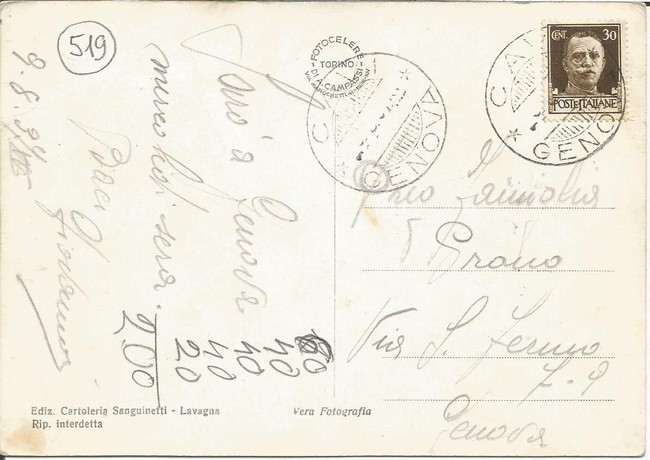 519
9.8.34 XII
Sarò a Genova
mercoledì sera.
Baci
Giovanna
60
40
40
40
20
200
FOTOCELERE
TORINO
DI A. CAMPASSI
GENOVA
CENT. 30
POSTE ITALIANE
GENO
Famiglia
Via S. Fermo
7-9
Genova
Ediz. Cartoleria Sanguinetti - Lavagna
Rip. interdetta
Vera Fotografia